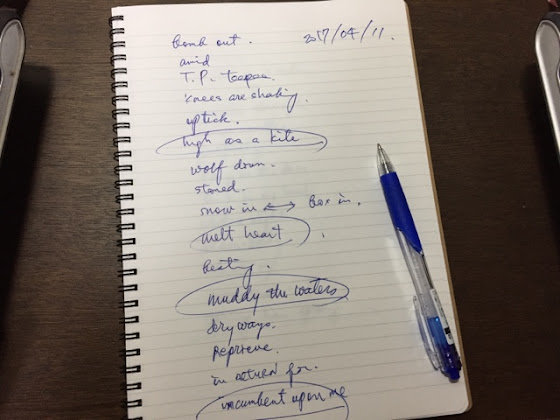 bomb out. 2017/04/11.
amid
T.P. teepee
knees are shaking.
uptick.
high as a kite
wolf down.
stoned.
snow in ↔ box in.
melt heart
beating.
muddy the waters
doryways.
Reprieve.
in return for.
incumbent upon me